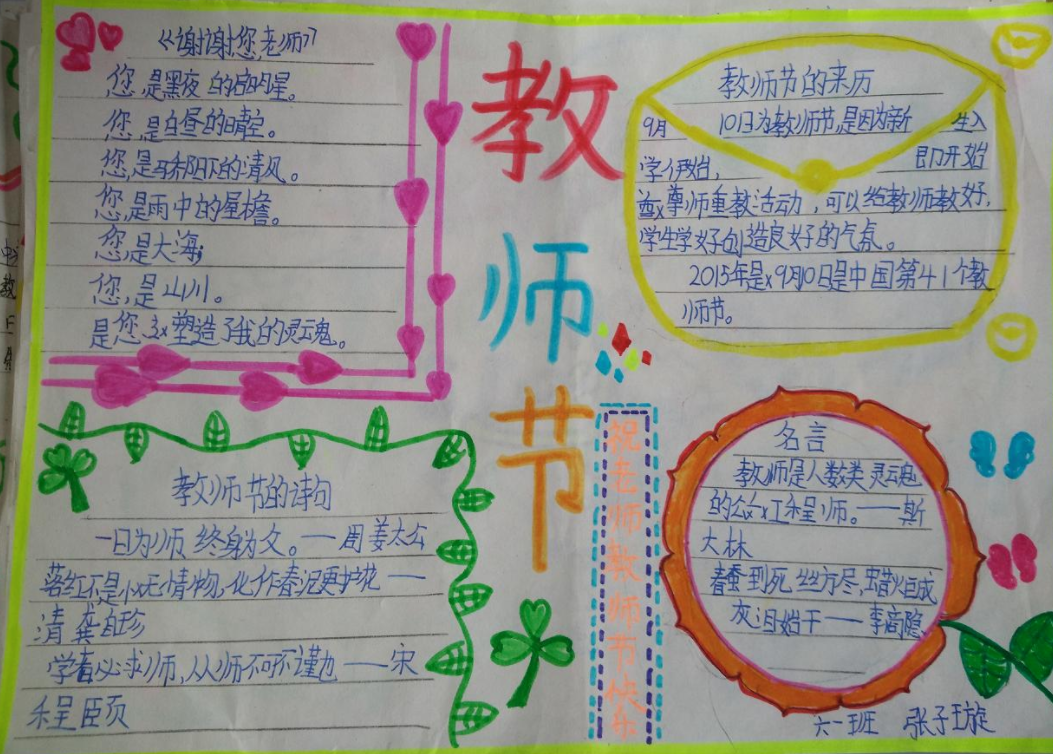 《谢谢您,老师》
您,是黑夜的启明星。
您,是白昼的晴空。
您,是骄阳下的清风。
您,是雨中的屋檐。
您是大海,
您,是山川。
是您,塑造了我的灵魂。
教
师
节
教师节的来历
9月10日为教师节,是因为新生入
学伊始,即开始
尊师重教活动,可以给教师教好,
学生学好创造良好的气氛。
2015年是9月10日是中国第41个教
师节。
教师节的诗句
一日为师,终身为父。—周姜太公
落红不是无情物,化作春泥更护花—
清 龚自珍
学者必求师,从师不可不谨也——宋
程颐
祝老师教师节快乐
名言
教师是人数类灵魂
的工程师。——斯
大林
春蚕到死丝方尽,蜡炬成
灰泪始干——李商隐
六一班 张子璇